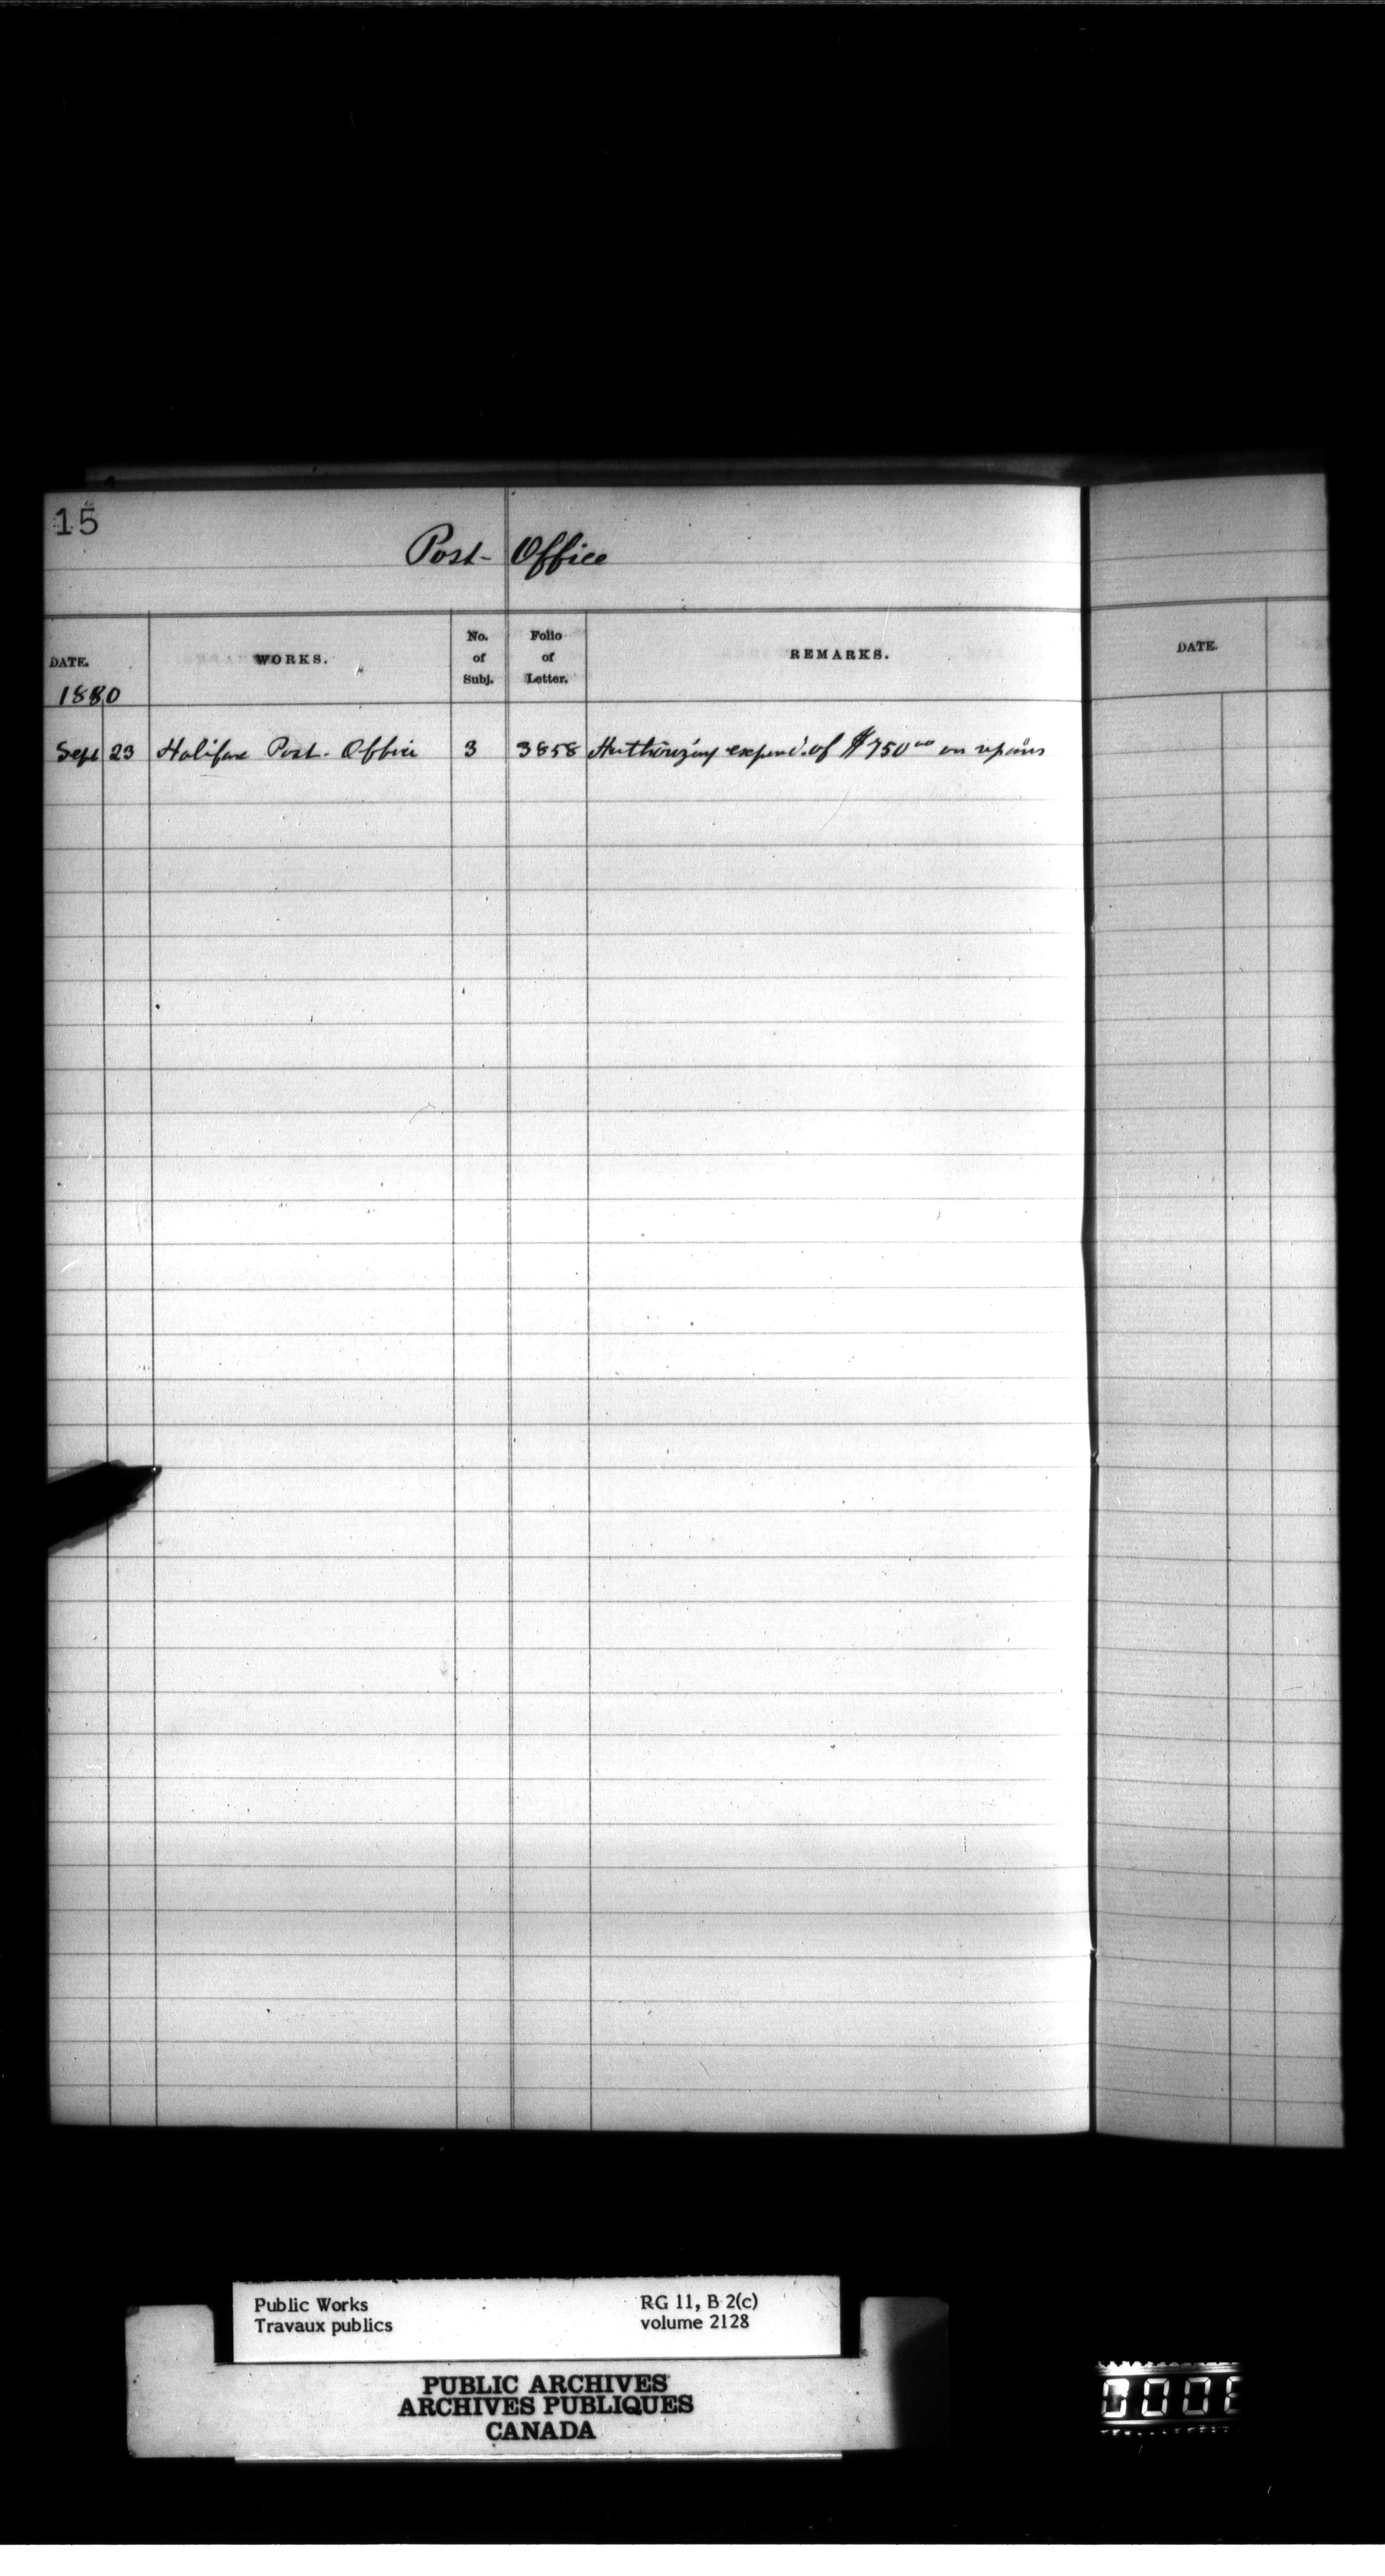 15
Post- Office
DATE. WORKS. No. of Subj. Folio of Letter. REMARKS. DATE.
1880
Sept 23 Halifax Post-Office 3 3858 Authorizing expend. of $750 00 on repairs
Public Works RG 11, B 2(c)
Travaux publics volume 2128
PUBLIC ARCHIVES
ARCHIVES PUBLIQUES
CANADA